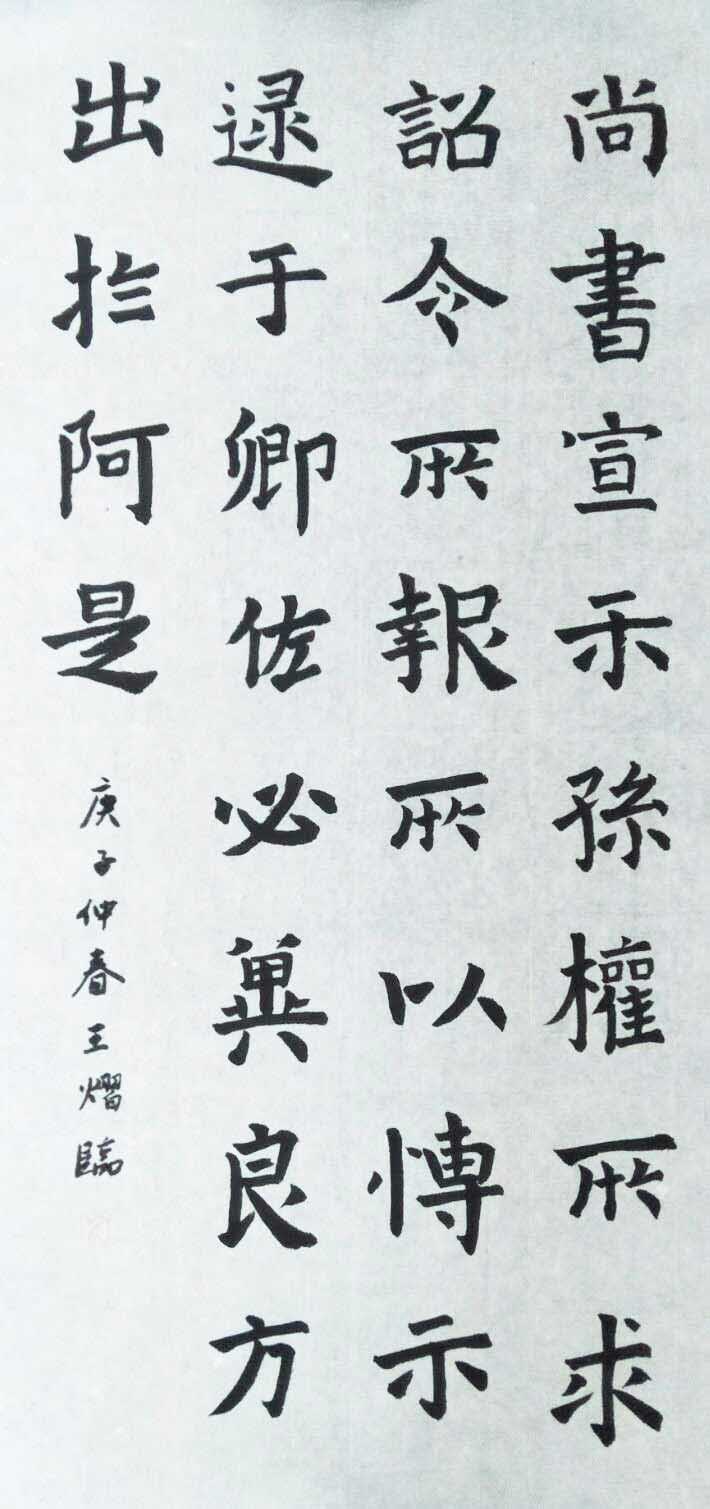 尚書宣示孫權所求
詔令所報所以博示
逮于卿佐必冀良方
出於阿是
庚子仲春王熠臨